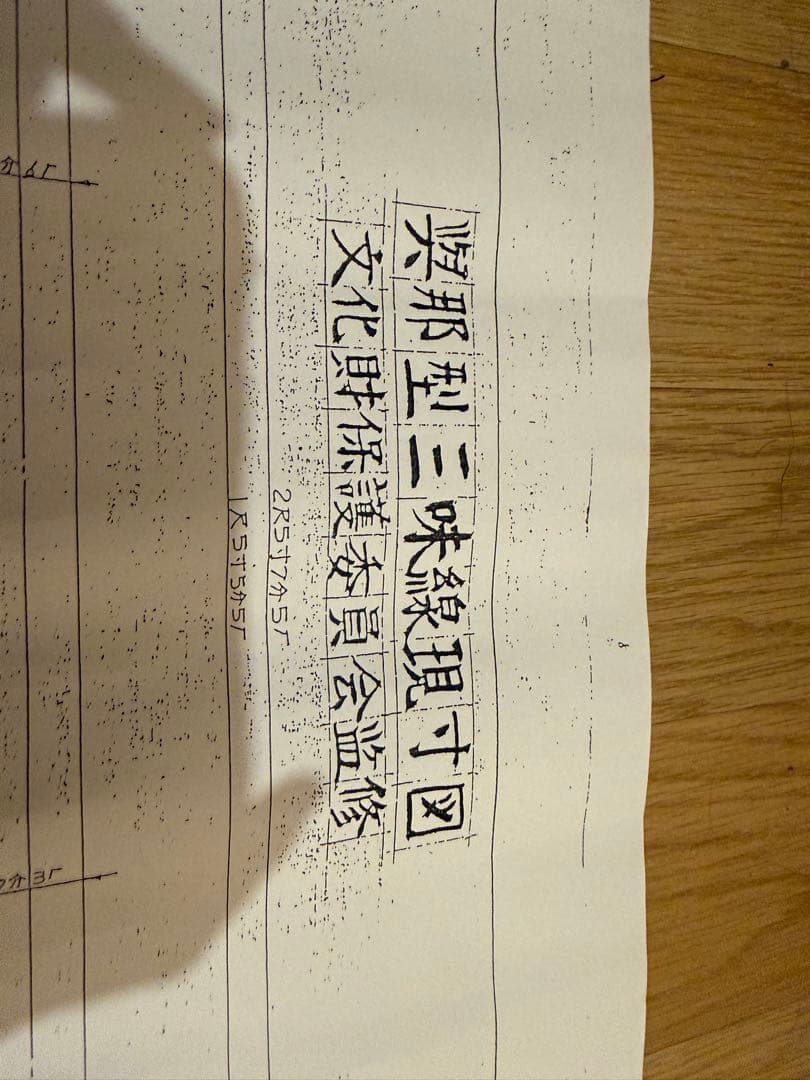 與那型三味線現寸図
文化財保護委員会监修
2尺5寸7分5厂
1尺5寸5分5厂
分6厂
分3厂